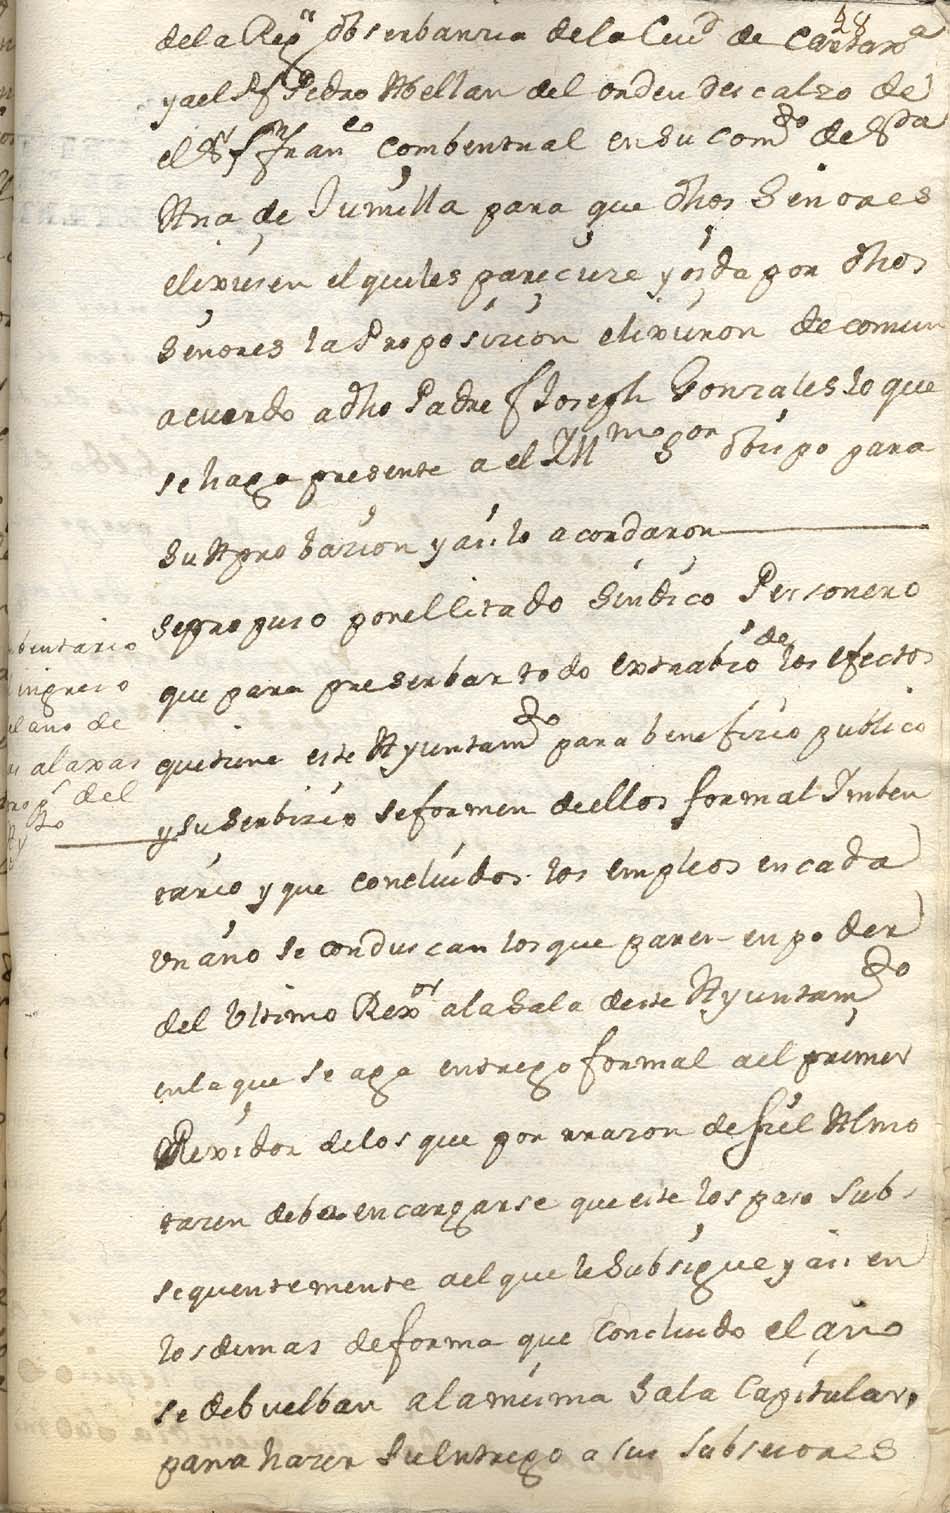 28
dela Regr Obserbanzia dela Ciud de Cartaxa
yael Pf Pedro Abellan del orden descalzo de
el Sr Sn Franco combentual ensu Comdo de Sta
Ana de Jumilla para que dhos Senores
elixiesen el queles pareciere y oida por dhos
Senores la Proposizion elixieron decomun
acuerdo adho Padre f Joseph Gonzales lo que
se haga presente a el Yllmo Sor Obispo para
su Aprobazion y asi lo acordaron
Sepropuso porel litado Sindico Personero
que para preserbar todo extrabio de los efectos
quetiene este Ayuntamdo para benefizio publico
y su serbizio seformen deellos formal Imben
tario y que concluidos los empleos encada
un año se conduscan losque paren enpoder
del Ultimo Rexor alasala deste Ayuntamdo
enla que se aga entrego formal ael primer
Rexidor delos que por rrazon defiel Almo
tazen debe encargarse que este los pase sub
sequentemente ael que le subsigue y asi en
losdemas deforma que Concluido el año
se debuelban ala misma sala Capitular
para hazer su entrego a sus subsesores
bentario
ingreso
el año de
alaxas
del